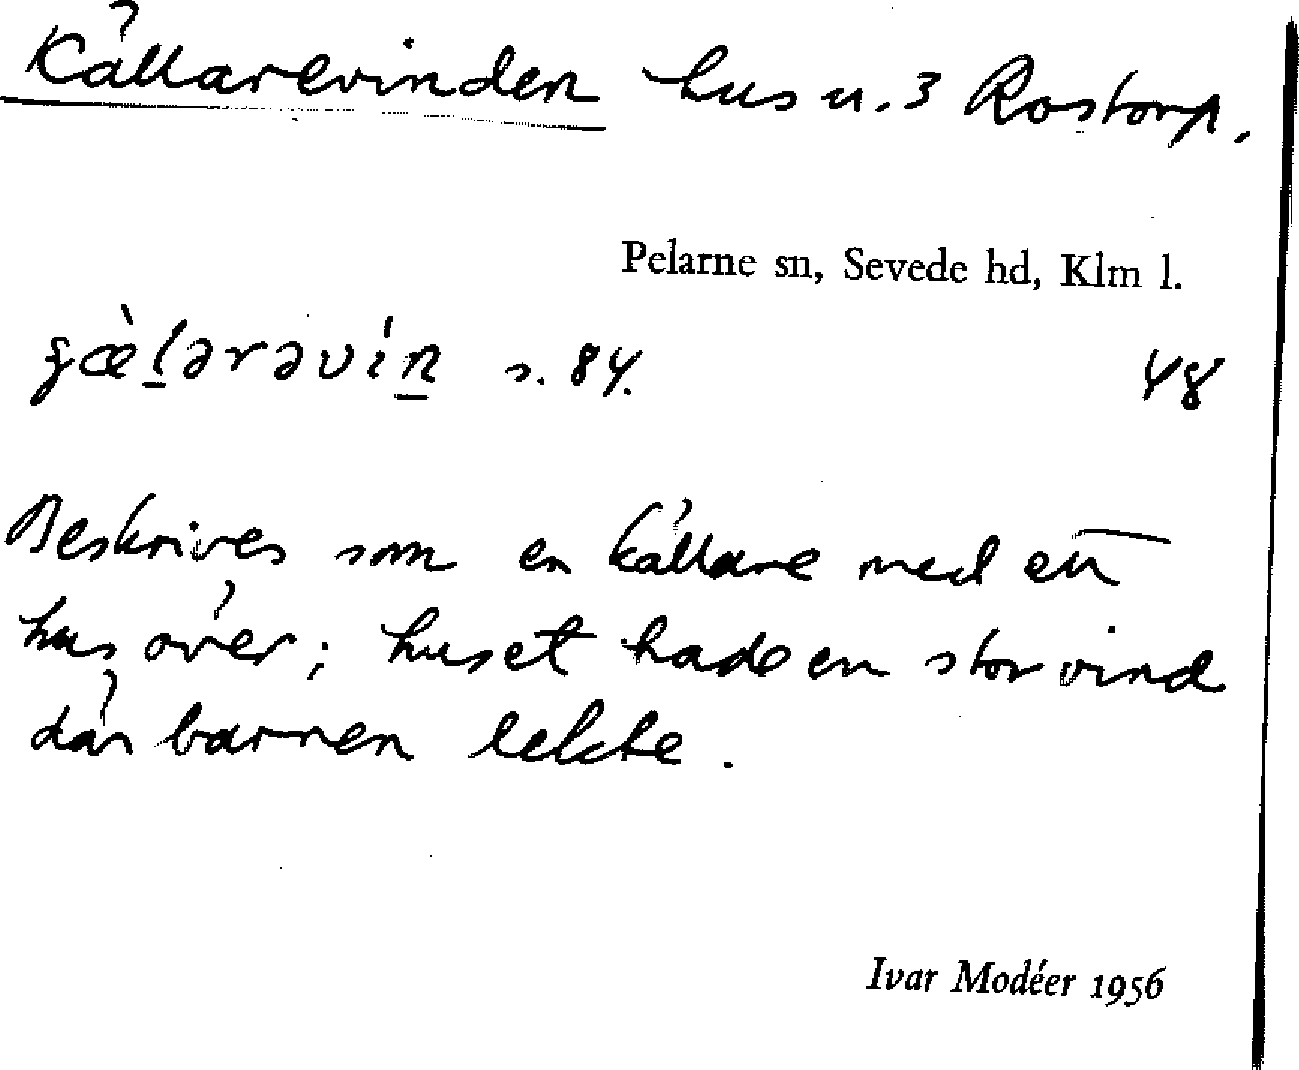 Källarevinden hus u. 3 Rostorp.
Pelarne sn, Sevede hd, Klm l.
s. 84. 48
Beskrives som en källare med ett
hus över; huset hade en stor vind
där barnen lekte.
Ivar Modéer 1956